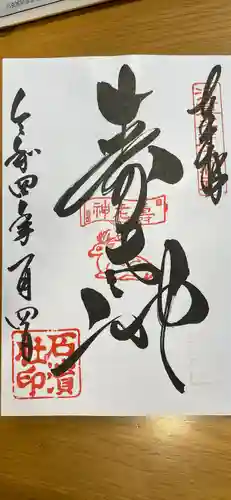 奉拝
寿老神
寿老神
令和四年一月四日
石濱
社印